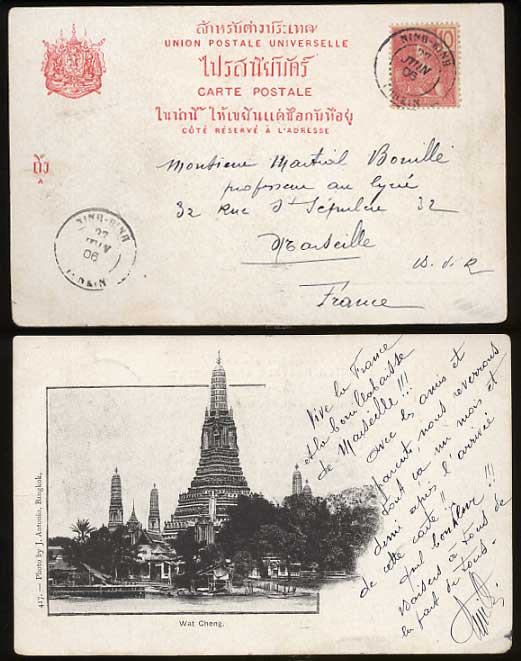 สำหรับต่างประเทศ
UNION POSTALE UNIVERSELLE
ไปรสนียบัตร์
CARTE POSTALE
ในน่านี้ ให้เขียนแต่ชื่อกับที่อยู่
CÔTÉ RÉSERVÉ À L'ADRESSE
ถึง
A
10
NINH-BINH
22
JUIN
06
TONKIN
Monsieur Martial Bouillé
professeur au lycée
32 Rue St Sépulcre 32
Marseille
B. d. R
France
NINH-BINH
22
JUIN
06
TONKIN
Vive la France
et la bouillabaisse
de Marseille !!!
avec les amis et
parents, nous reverrons
tout ça un mois et
demi après l'arrivée
de cette carte !!
quel bonheur !!!
Baisers à tous de
la part de tous.
417. — Photo by J. Antonio, Bangkok.
Wat Cheng.